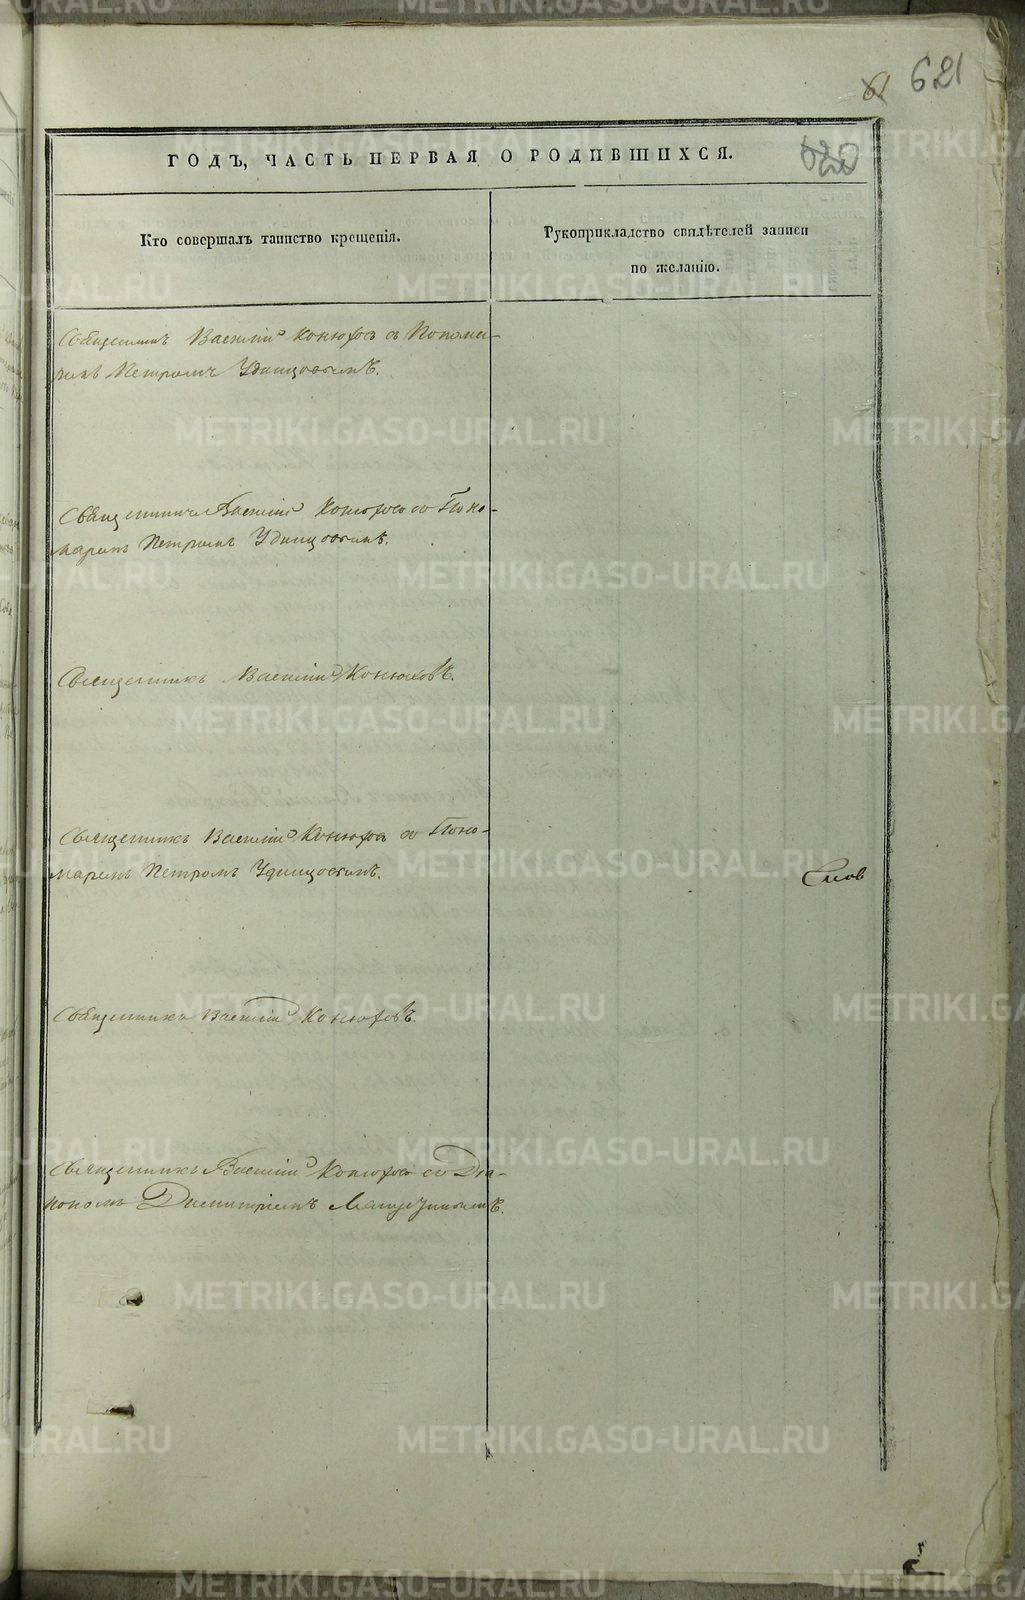 61 621
620
ГОДЪ, ЧАСТЬ ПЕРВАЯ О РОДИВШИХСЯ.
Кто совершалъ таинство крещенія.
Рукоприкладство свидѣтелей записи
по желанію.
Священникъ Василій Конюховъ съ Понома-
ремъ Петромъ Удинцовымъ.
Священникъ Василій Конюховъ со Поно-
маремъ Петромъ Удинцовымъ.
Священникъ Василій Конюховъ.
Священникъ Василій Конюховъ со Поно-
маремъ Петромъ Удинцовымъ.
Священникъ Василій Конюховъ.
Священникъ Василій Конюховъ со Діа-
кономъ Димитріемъ
METRIKI.GASO-URAL.RU